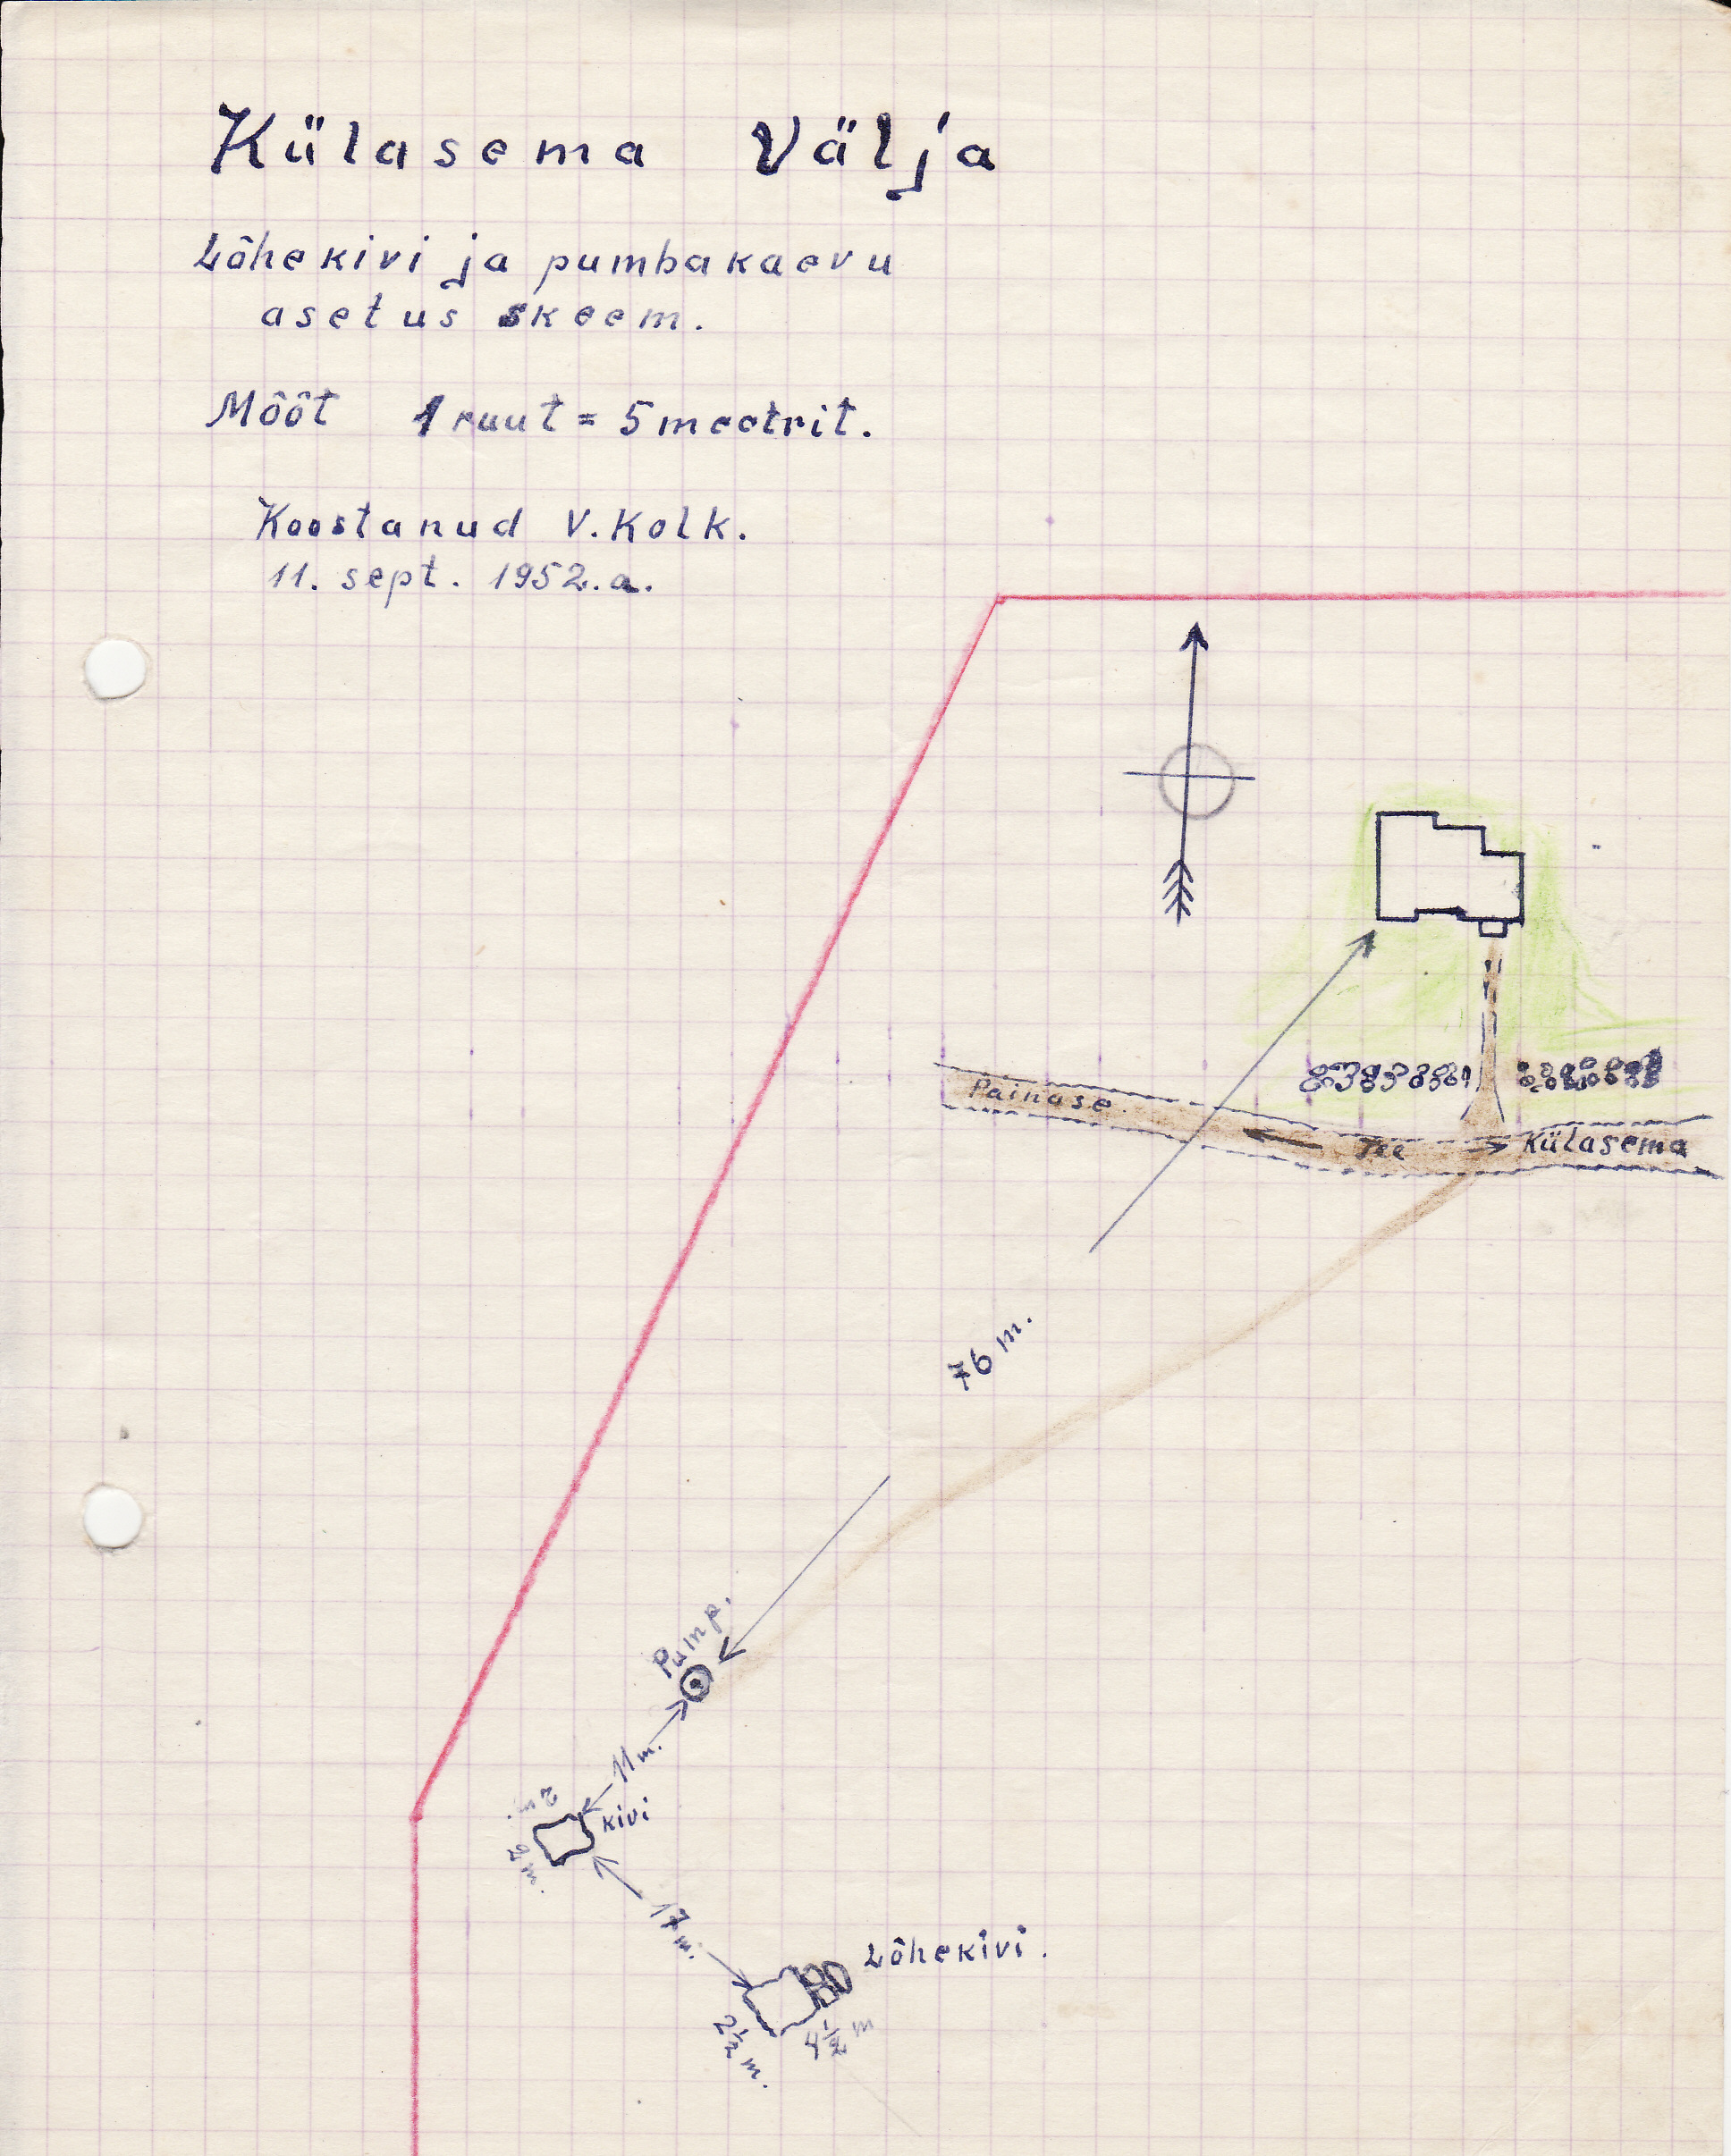 Külasema Välja
Lõhekivi ja pumbakaevu
asetus skeem.
Mõõt 1 ruut = 5 meetrit.
Koostanud V. Kolk.
11. sept. 1952.a.
Painase.
Tee
Külasema
76 m.
Pump.
11 m.
kivi
2 m.
2 m.
17 m.
Lõhekivi.
2 1/2 m.
4 1/2 m